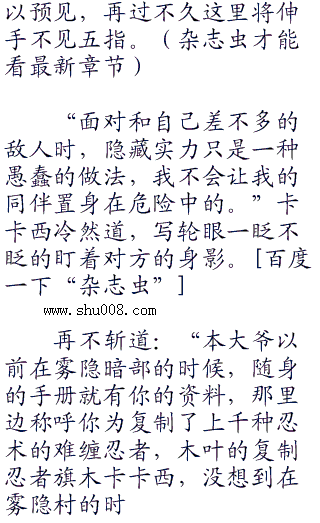 以预见，再过不久这里将伸
手不见五指。（杂志虫才能
看最新章节）
“面对和自己差不多的
敌人时，隐藏实力只是一种
愚蠢的做法，我不会让我的
同伴置身在危险中的。”卡
卡西冷然道，写轮眼一眨不
眨的盯着对方的身影。[百度
一下“杂志虫”]
www.shu008.com
再不斩道：“本大爷以
前在雾隐暗部的时候，随身
的手册就有你的资料，那里
边称呼你为复制了上千种忍
术的难缠忍者，木叶的复制
忍者旗木卡卡西，没想到在
雾隐村的时